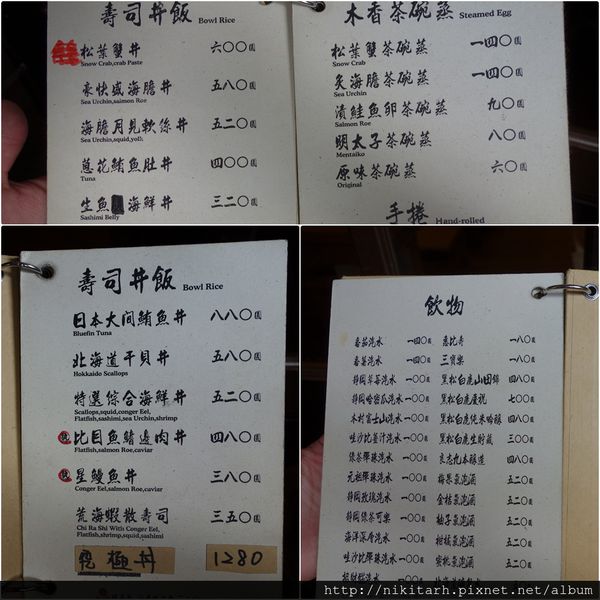 壽司丼飯 Bowl Rice
松葉蟹丼 六〇〇圓
Snow Crab,crab Paste
豪快盛海膽丼 五八〇圓
Sea Urchin,salmon Roe
海膽月見軟絲丼 五二〇圓
Sea Urchin,squid,yolk
蔥花鮪魚肚丼 四〇〇圓
Tuna
生魚 海鮮丼 三二〇圓
Sashimi Belly
木香茶碗蒸 Steamed Egg
松葉蟹茶碗蒸 一四〇圓
Snow Crab
炙海膽茶碗蒸 一四〇圓
Sea Urchin
漬鮭魚卵茶碗蒸 九〇圓
Salmon Roe
明太子茶碗蒸 八〇圓
Mentaiko
原味茶碗蒸 六〇圓
Original
手捲 Hand-rolled
壽司丼飯 Bowl Rice
日本大间鮪魚丼 八八〇圓
Bluefin Tuna
北海道干貝丼 五八〇圓
Hokkaido Scallops
特選綜合海鮮丼 五二〇圓
Scallops,squid,conger Eel,
Flatfish,sashimi,sea Urchin,shrimp
比目魚鰭邊肉丼 四八〇圓
Flatfish,salmon Roe,caviar
星鰻魚丼 三八〇圓
Conger Eel,salmon Roe,caviar
荒海蝦散壽司 三五〇圓
Chi Ra Shi With Conger Eel,
Flatfish,shrimp,squid,sashimi
極丼 1280
飲物
番茄汽水 一四〇圓 惠比壽 一八〇圓
番薯汽水 一四〇圓 三寶樂 一八〇圓
靜岡草莓汽水 一四〇圓 黑松白鹿山田錦 四八〇圓
靜岡哈密瓜汽水 一四〇圓 黑松白鹿 七〇〇圓
木村富士山汽水 一〇〇圓 黑松白鹿純米吟釀 四八〇圓
哇沙比薑汁汽水 一〇〇圓 黑松白鹿生貯藏 三〇〇圓
綠茶彈珠汽水 一〇〇圓 釀造 四八〇圓
元祖彈珠汽水 一〇〇圓 梅果氣泡酒 五二〇圓
靜岡玫瑰汽水 一〇〇圓 金桔氣泡酒 五二〇圓
靜岡綠茶可樂 一〇〇圓 柚子氣泡酒 五二〇圓
海洋深層汽水 一〇〇圓 柑橘氣泡酒 五二〇圓
哇沙比彈珠汽水 一〇〇圓 蜜桃氣泡酒 五二〇圓
http://nikitarh.pixnet.net/album